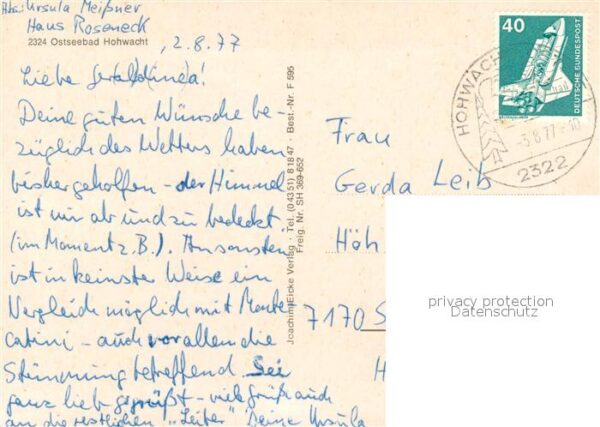 Abs: Ursula Meißner
Haus Roseneck
2324 Ostseebad Hohwacht
, 2.8.77
Liebe
Deine guten Wünsche be-
züglich des Wetters haben
bisher geholfen - der Himmel
ist nur ab und zu bedeckt
(im Moment z.B.). Ansonsten
ist in keinster Weise ein
Vergleich möglich mit Monte-
catini - auch vor allen die
Stimmung betreffend. Sei
ganz lieb gegrüßt - viele Grüße auch
an die restlichen "Leiber" Deine Ursula
Joachim Eicke Verlag · Tel. (0 43 51) 8 18 47 · Best.-Nr. F 595
Freig. Nr. SH 369-652
40
DEUTSCHE BUNDESPOST
HOHWACH
-3.8.77-10
2322
Frau
Gerda Leib
Höh
7170 S
H
privacy protection
Datenschutz